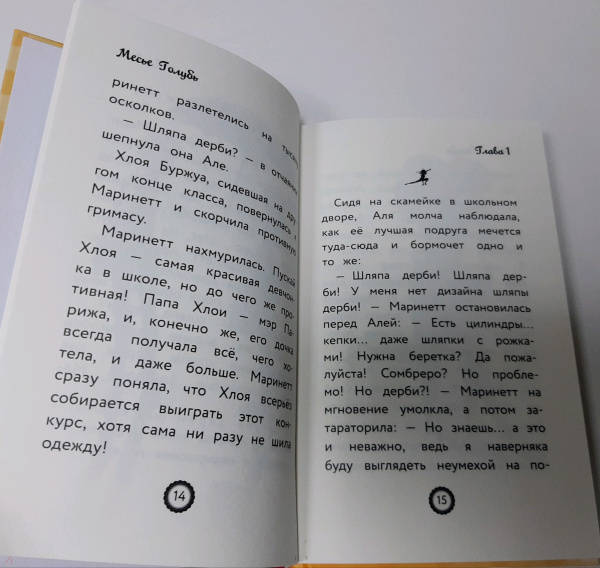 Месье Голубь
ринетт разлетелись на тысячи
осколков.
— Шляпа дерби? — в отчаянии
шепнула она Але.
Хлоя Буржуа, сидевшая на дру-
гом конце класса, повернулась к
Маринетт и скорчила противную
гримасу.
Маринетт нахмурилась. Пускай
Хлоя — самая красивая девчон-
ка в школе, но до чего же про-
тивная! Папа Хлои — мэр Па-
рижа, и, конечно же, его дочка
всегда получала всё, чего хо-
тела, и даже больше. Маринетт
сразу поняла, что Хлоя всерьёз
собирается выиграть этот кон-
курс, хотя сама ни разу не шила
одежду!
14
Глава 1
Сидя на скамейке в школьном
дворе, Аля молча наблюдала,
как её лучшая подруга мечется
туда-сюда и бормочет одно и
то же:
— Шляпа дерби! Шляпа дер-
би! У меня нет дизайна шляпы
дерби! — Маринетт остановилась
перед Алей: — Есть цилиндры...
кепки... даже шляпки с рожка-
ми! Нужна беретка? Да пожа-
луйста! Сомбреро? Но пробле-
мо! Но дерби?! — Маринетт на
мгновение умолкла, а потом за-
тараторила: — Но знаешь... а это
и неважно, ведь я наверняка
буду выглядеть неумехой на по-
15